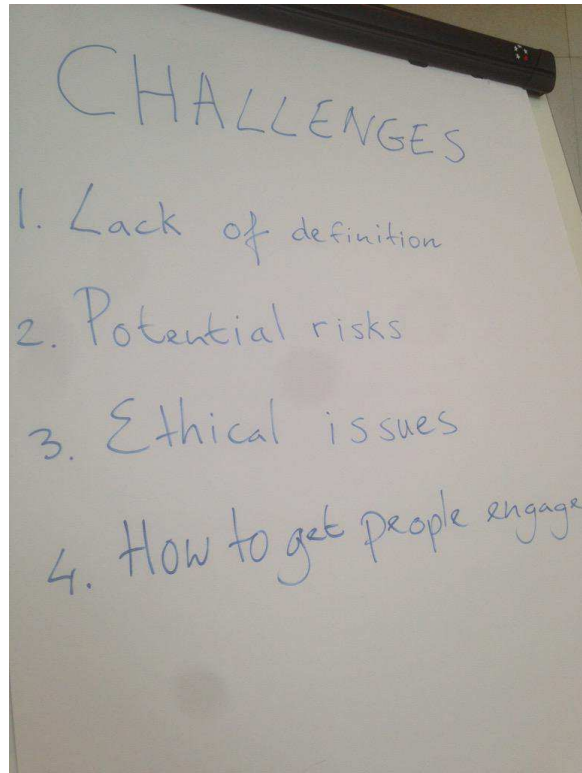 CHALLENGES
1. Lack of definition
2. Potential risks
3. Ethical issues
4. How to get people engage